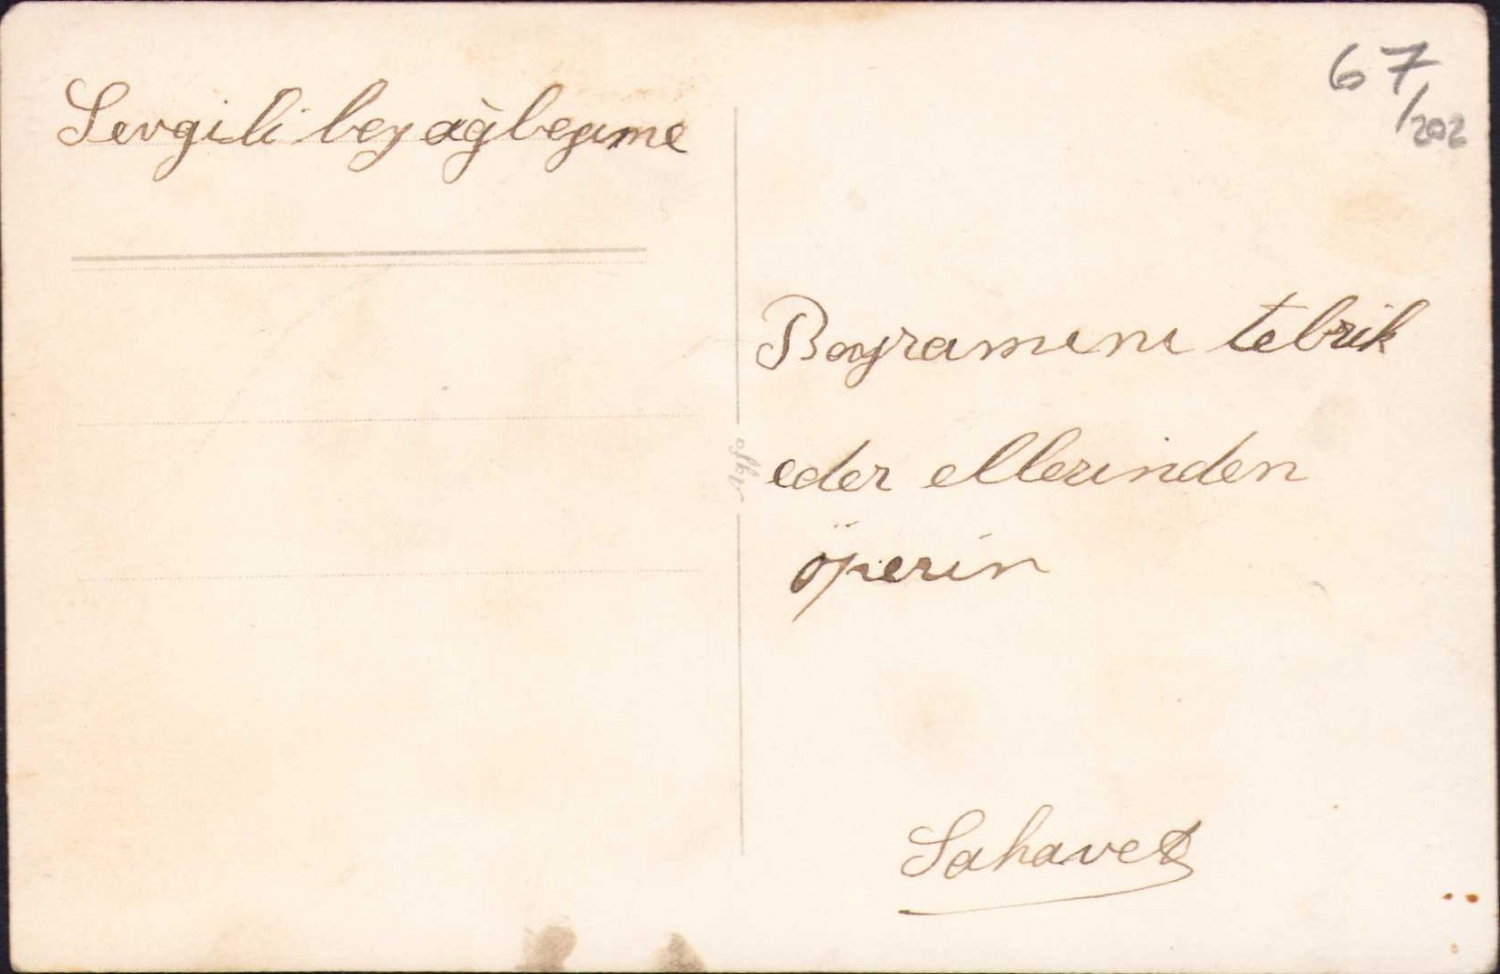 Sevgili bey ağbegime
67/202
Bayramını tebrik
eder ellerinden
öperim
Sahavet